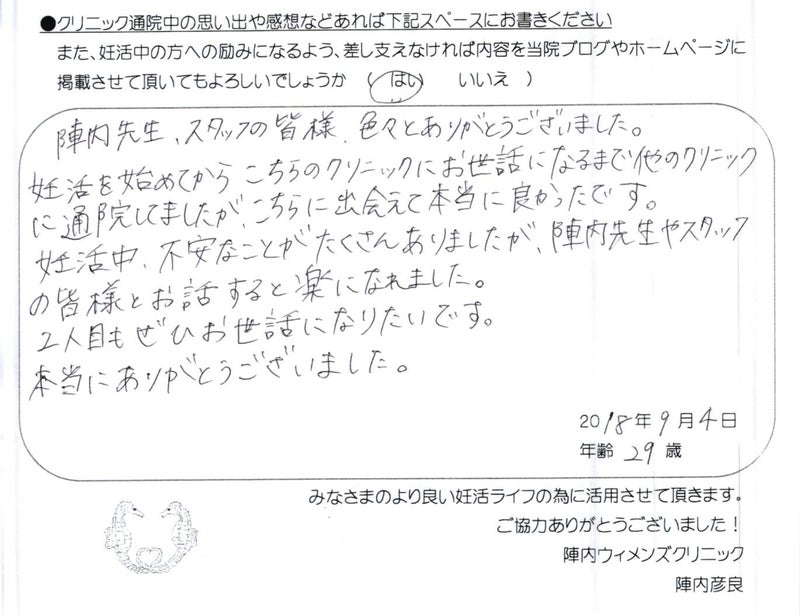 ●クリニック通院中の思い出や感想などあれば下記スペースにお書きください
また、妊活中の方への励みになるよう、差し支えなければ内容を当院ブログやホームページに
掲載させて頂いてもよろしいでしょうか （ はい いいえ ）
陣内先生、スタッフの皆様、色々とありがとうございました。
妊活を始めてから こちらのクリニックにお世話になるまで他のクリニック
に通院してましたが、こちらに出会えて本当に良かったです。
妊活中、不安なことがたくさんありましたが、陣内先生やスタッフ
の皆様とお話すると楽になれました。
2人目もぜひお世話になりたいです。
本当にありがとうございました。
2018年9月4日
年齢 29 歳
みなさまのより良い妊活ライフの為に活用させて頂きます。
ご協力ありがとうございました！
陣内ウィメンズクリニック
陣内彦良